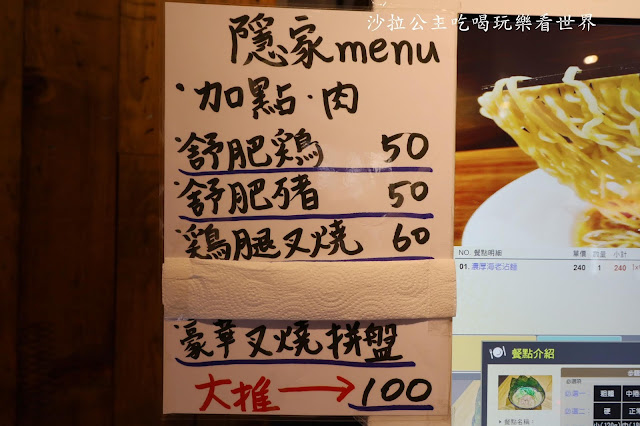 沙拉公主吃喝玩樂看世界
隱家menu
·加點·肉
·舒肥鷄 50
·舒肥豬 50
·鷄腿叉燒 60
·豪華叉燒拼盤
大推→100
NO. 餐點明細 單價 數量 小計
01. 濃厚海老沾麵 240 1 240
餐點介紹
粗麵
硬
餐點名稱：